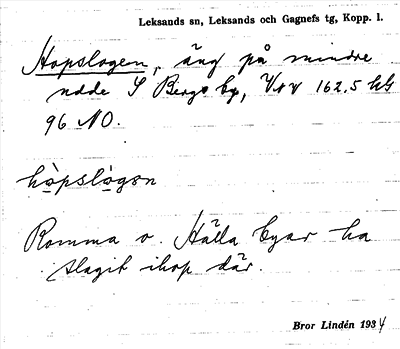 Leksands sn, Leksands och Gagnefs tg, Kopp. l.
Hopslogen, äng på mindre
udde S Bergs by, VNV 162.5 kbl
96 NO.
hòpslògən
Romma o. Hälla byar ha
slagit ihop där.
Bror Lindén 1934